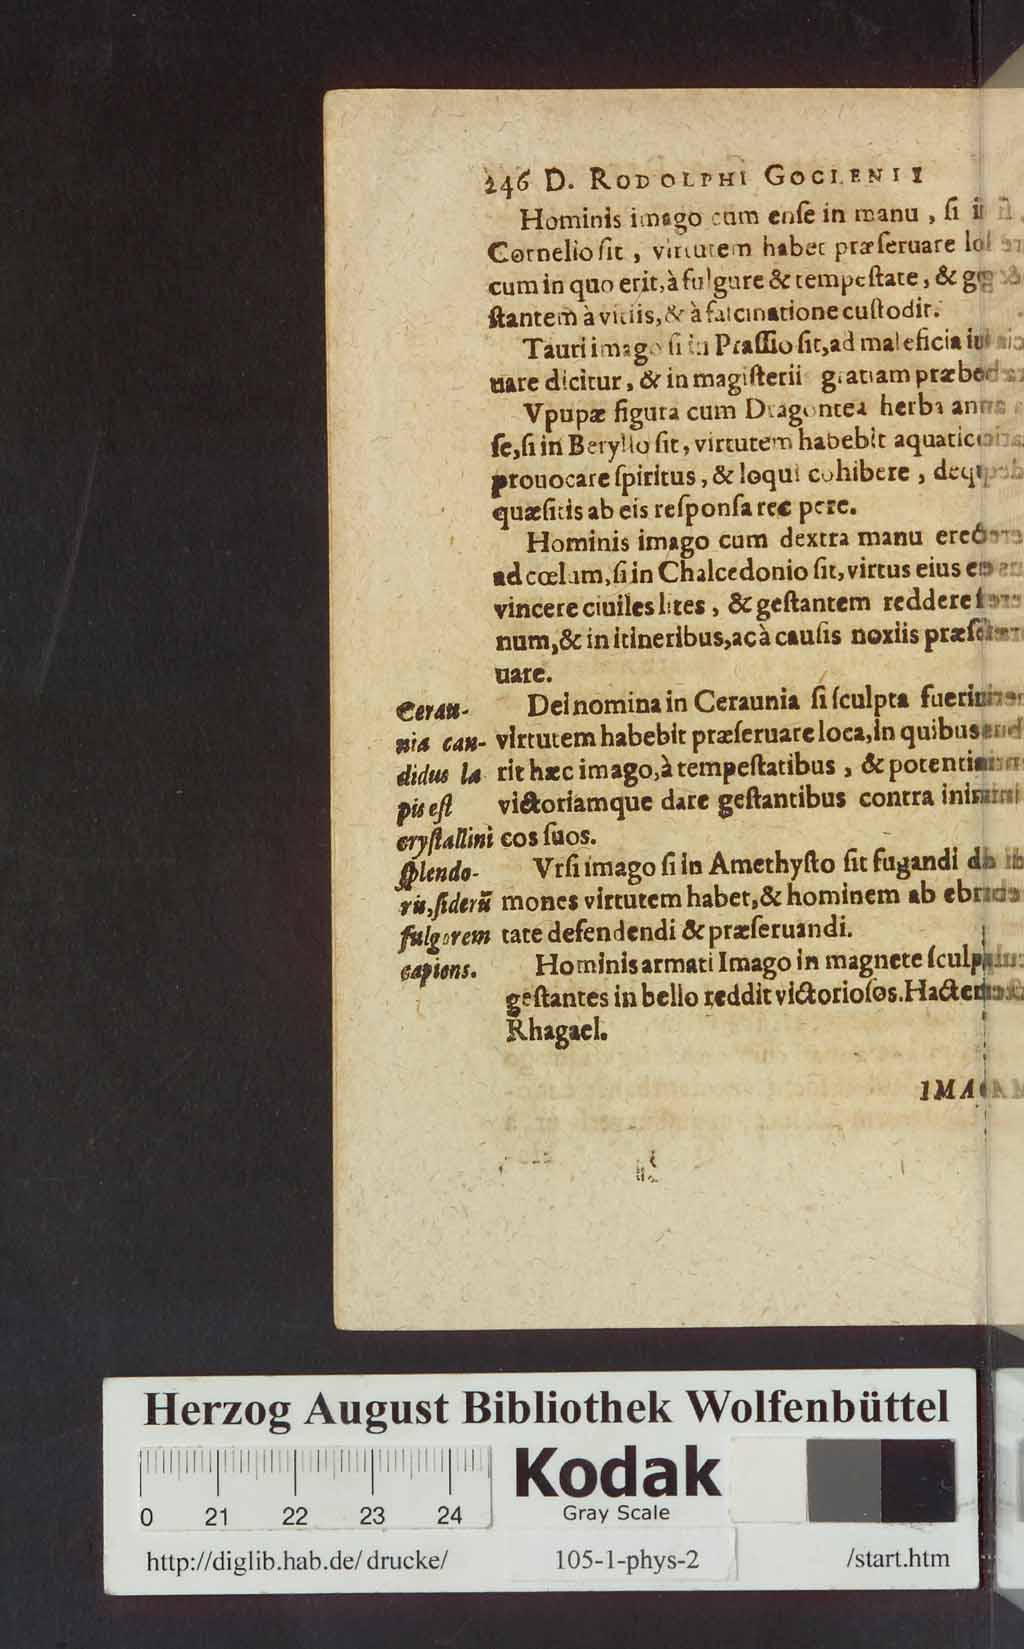 246 D. RODOLPHI GOCLENII
Hominis imago cum enſe in manu , ſi in
Cornelio ſit , virtutem habet præſeruare
cum in quo erit, à fulgure & tempeſtate, &
ſtantem à vitiis, & à faſcinatione cuſtodit.
Tauri imago ſi in Praſſio ſit, ad maleficia
uare dicitur, & in magiſterii gratiam
Vpupæ figura cum Dragontea herba
ſe, ſi in Beryllo ſit, virtutem habebit
prouocare ſpiritus, & loqui cohibere ,
quæſitis ab eis reſponſa recipere.
Hominis imago cum dextra manu
ad cœlum, ſi in Chalcedonio ſit, virtus eius
vincere ciuiles lites , & geſtantem reddere
num, & in itineribus, ac à cauſis noxiis
uare.
Dei nomina in Ceraunia ſi ſculpta
virtutem habebit præſeruare loca, in quibus
rit hæc imago, à tempeſtatibus , &
victoriamque dare geſtantibus contra
cos ſuos.
Vrſi imago ſi in Amethyſto ſit fugandi
mones virtutem habet, & hominem ab
tate defendendi & præſeruandi.
Hominis armati Imago in magnete
geſtantes in bello reddit victorioſos.
Rhagael.
Cerau-
nia can-
didus la
pis eſt
cryſtallini
ſplendo-
ris, ſiderũ
fulgorem
capiens.
Herzog August Bibliothek Wolfenbüttel
0 21 22 23 24
Kodak
Gray Scale
http://diglib.hab.de/drucke/ 105-1-phys-2 /start.htm